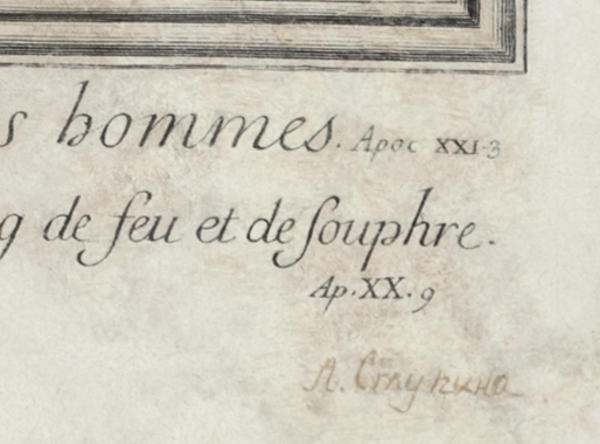 s hommes. Apoc XXI-3
g de feu et de souphre.
Ap. XX. 9
А. Ступина